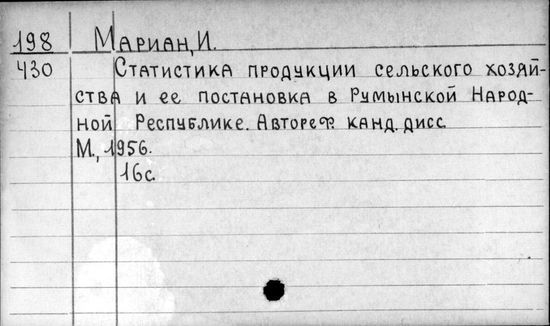 198 Мариан, И.
430 Статистика продукции сельского хозяй-
ства и ее постановка в Румынской Народ-
ной Республике. Автореф. канд. дисс.
М., 1956.
16с.